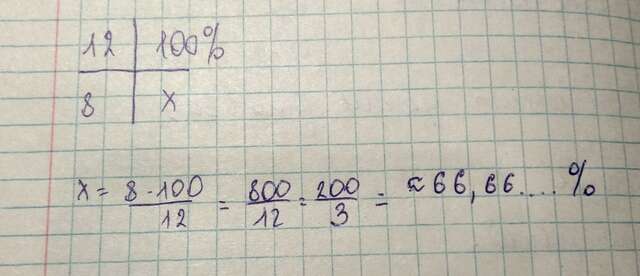 12 | 100%
8 | x
x = 8 · 100 / 12 = 800 / 12 = 200 / 3 = ≈ 66,66.... %